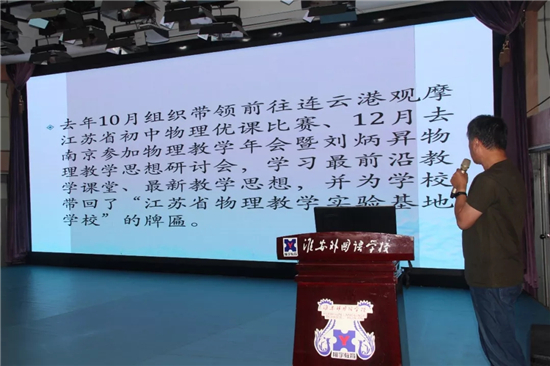 去年10月组织带领前往连云港观摩
江苏省初中物理优课比赛、12月去
南京参加物理教学年会暨刘炳昇物
理教学思想研讨会，学习最前沿教
学课堂、最新教学思想，并为学校
带回了“江苏省物理教学实验基地
学校”的牌匾。
淮安外国语学校